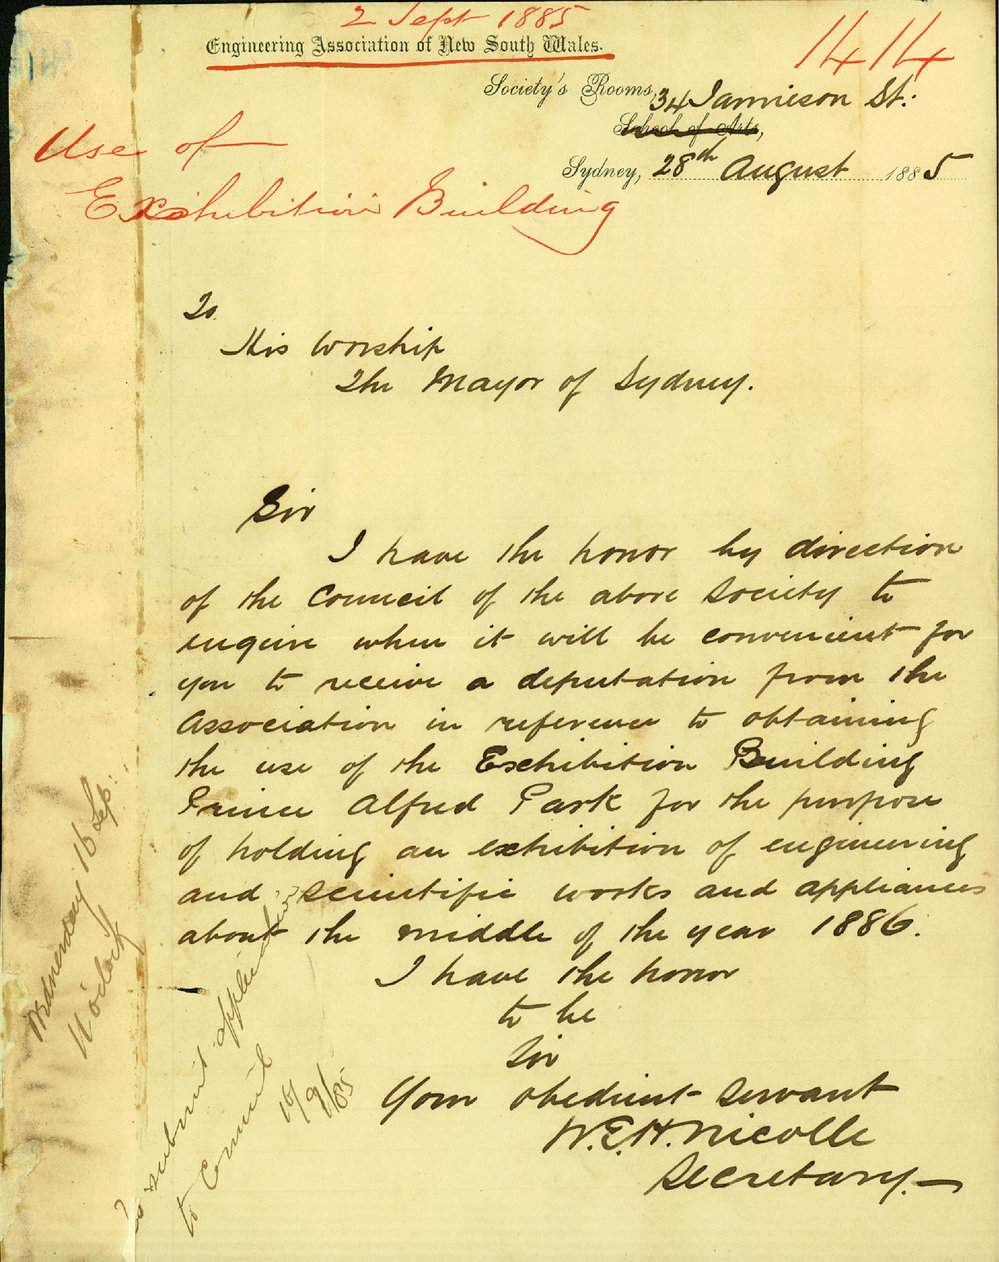 2 Sept 1885
Engineering Association of New South Wales.
1414
Society's Rooms,
34 Jamieson St:
School of Arts,
Sydney, 28th August 1885
Use of
Exhibition Building
To
His Worship
The Mayor of Sydney.
Sir
I have the honor by direction
of the Council of the above Society to
enquire when it will be convenient for
you to receive a deputation from the
Association in reference to obtaining
the use of the Exhibition Building
Prince Alfred Park for the purpose
of holding an exhibition of engineering
and scientific works and appliances
about the middle of the year 1886.
I have the honor
to be
Sir
Your obedient servant
W.E.H. Nicolle
Secretary.
Wednesday 16 Sep:
11 o'clock
To submit application
to Council
16/9/85